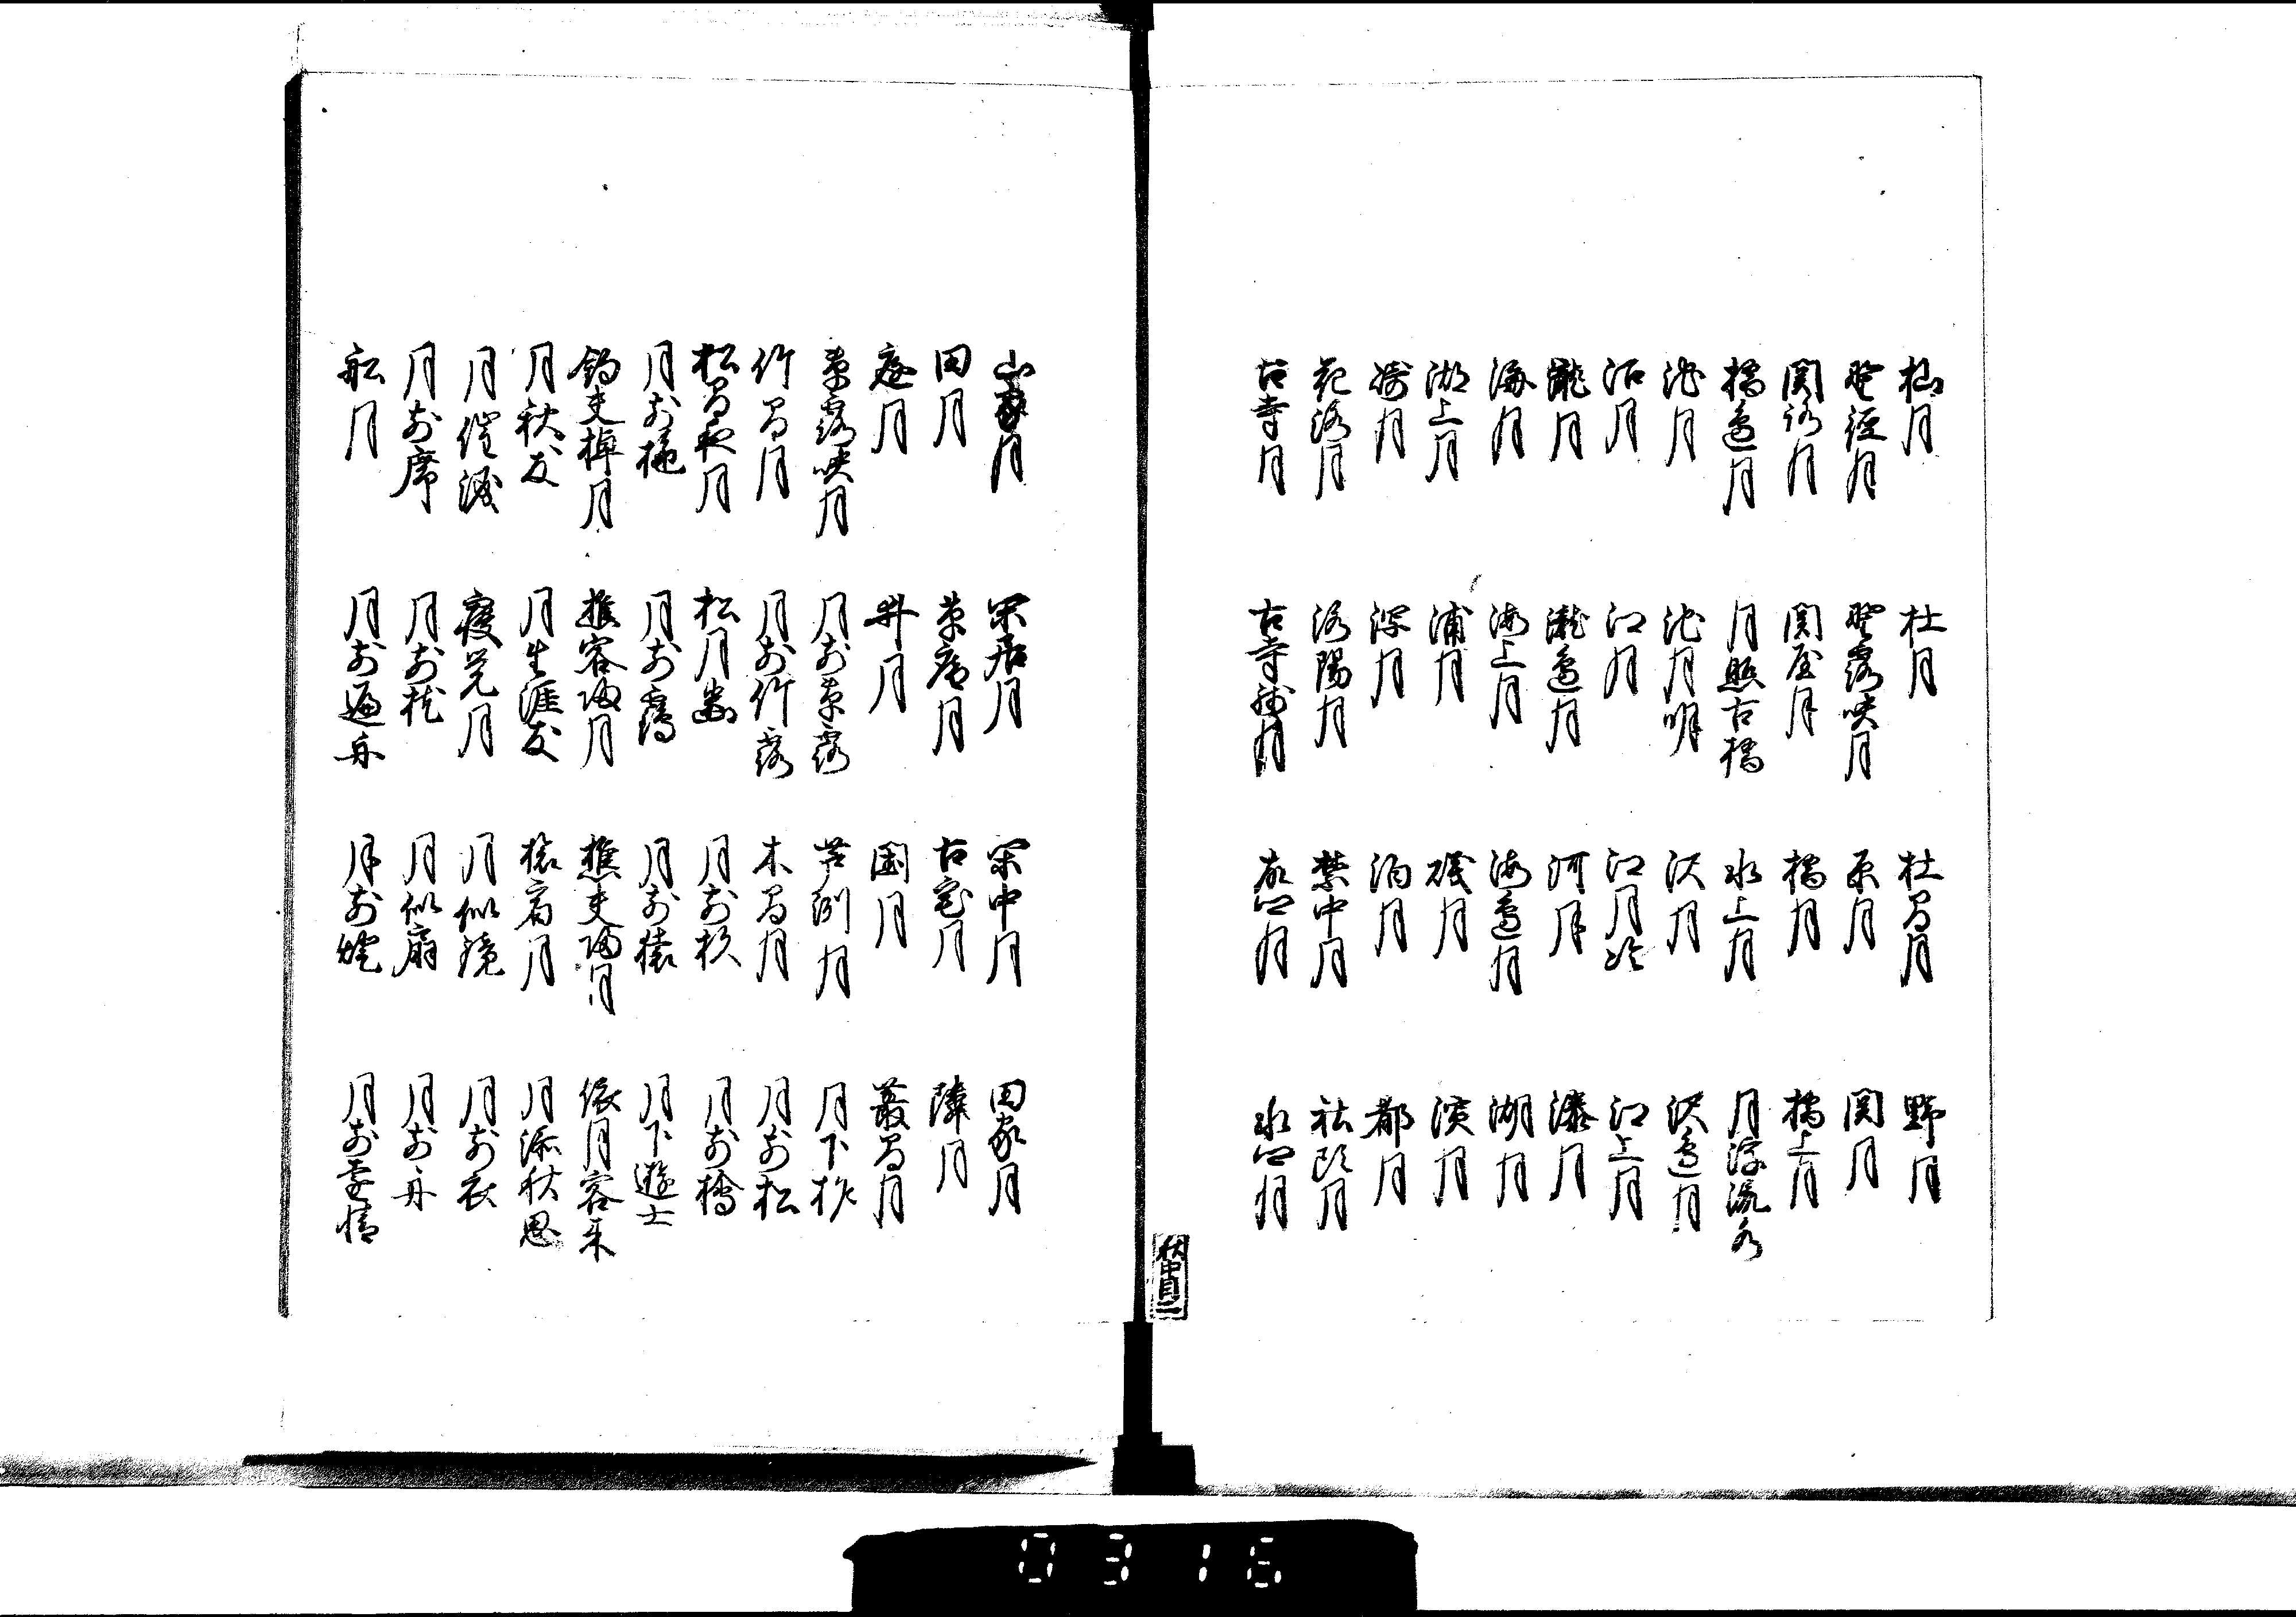 杣月 杜月 杜間月 野月
野径月 野露映月 原月 関月
関路月 関屋月 橋月 橋上月
橋辺月 月照古橋 水上月 月浮流水
池月 池月明 沢月 沢辺月
沼月 江月 江月冷 江上月
瀧月 瀧辺月 河月 瀑月
海月 海上月 海辺月 湖月
湖上月 浦月 磯月 濱月
月 月 泊月 都月
花洛月 洛陽月 禁中月 社頭月
古寺月 古寺残月 故郷月 水郷月
秋中目二
山家月 閑居月 閑中月 田家月
田月 草庵月 古宅月 隣月
庭月 井月 園月 叢間月
草露映月 月前草露 芦洲月 月下荻
竹間月 月前竹露 木間月 月前松
松間夜月 松月幽 月前杉 月前檜
月前 月前 月前猿 月下遊士
釣夫棹月 樵客帰月 樵夫帰月 依月客来
月秋友 月生涯友 旅宿月 月添秋思
月催涙 寝覚月 月似鏡 月前衣
月前席 月前枕 月似扇 月前舟
船月 月前遠舟 月前煙 月前情
0316